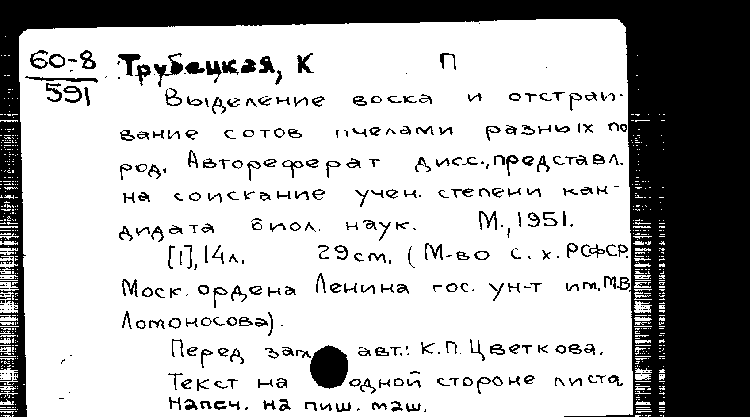 60-8 Трубецкая, К П
591
Выделение воска и отстраи-
вание сотов пчелами разных по
род. Автореферат дисс., представл.
на соискание учен. степени кан-
дидата биол. наук. М., 1951.
[1], 14л. 29см. (М-во с. х. РСФСР.
Моск. ордена Ленина гос. ун-т им. М.В
Ломоносова).
Перед авт.: К.П. Цветкова.
Текст на одной стороне листа
Напеч. на пиш. маш.